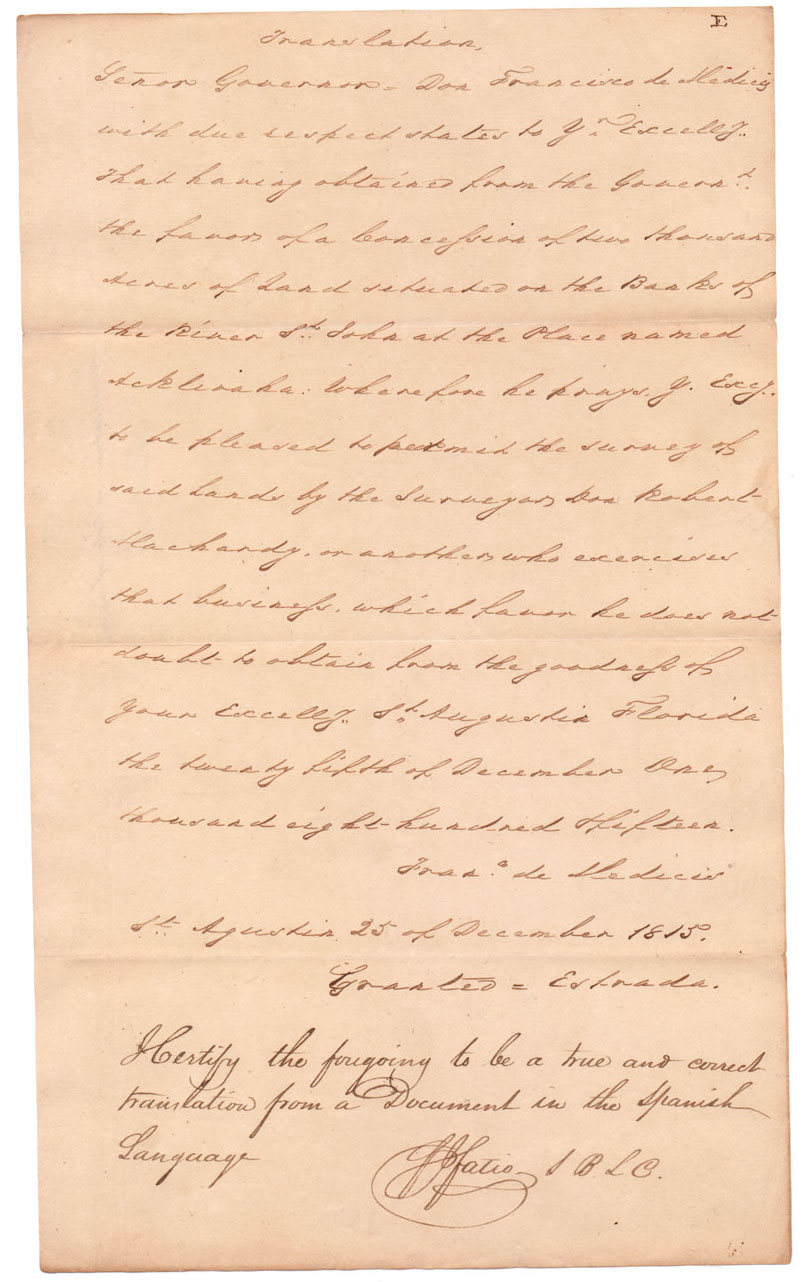 E
Translation,
Señor Governor = Don Francisco de Medicis
with due respect states to Yr. Excelly.
That having obtained from the Governt.
the favor of a Concession of two thousand
Acres of Land situated on the Banks of
the River St. John at the Place named
Acklivaha: Wherefore he prays, Y. Excy.
to be pleased to permit the survey of
said Lands by the Surveyor Don Robert
Machardy, or another who exercises
that business, which favor he does not
doubt to obtain from the goodness of
your Excelly. St. Augustin Florida
the twenty fifth of December One
thousand eight hundred & fifteen.
Frano. de Medicis
St. Agustin 25 of December 1815.
Granted = Estrada.
I Certify the foregoing to be a true and correct
translation from a Document in the Spanish
Language
Fatio S B L C.